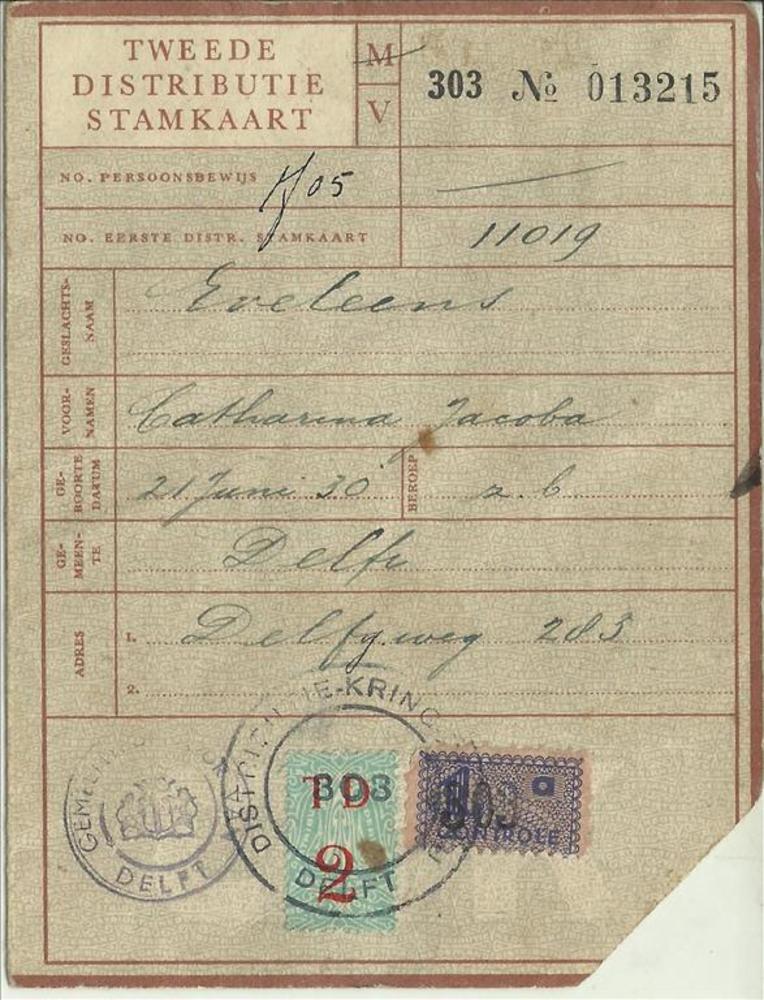 TWEEDE
DISTRIBUTIE
STAMKAART
M
V
303 No 013215
NO. PERSOONSBEWIJS
05
NO. EERSTE DISTR. STAMKAART 11019
GESLACHTS-
NAAM
Eveleens
VOOR-
NAMEN
Catharina Jacoba
GE-
BOORTE
DATUM
21 Juni 30
BEROEP
z. b.
GE-
MEEN-
TE
Delft
ADRES
1. Delfg.weg 283
2.
GEMEENTE
DELFT
DISTRIBUTIE-KRING
DELFT
TD
303
2
303
CONTROLE